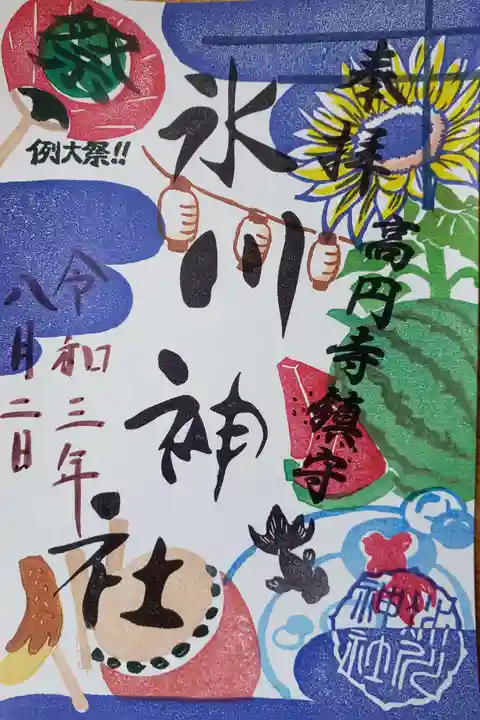 奉拝
高円寺鎮守
氷川神社
祭
例大祭!!
令和三年
八月二日
氷川
神社